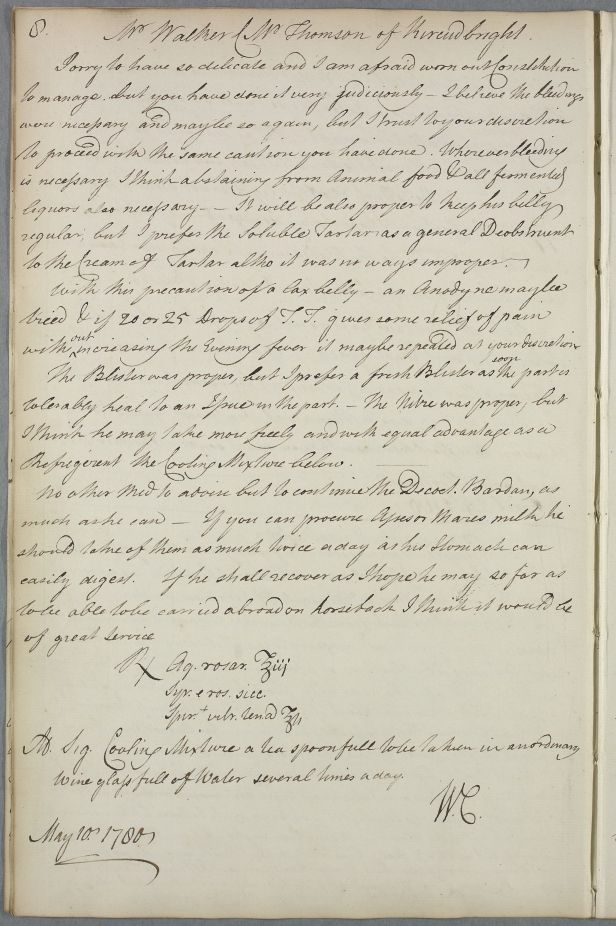 8.
Mr Walker (Mr Thomson of Kircudbright.
Sorry to have so delicate and I am afraid worn out Constitution
to manage. but you have done it very judiciously – I believe the bleedings
were necessary and maybe so again, but I trust to your discretion
to proceed with the same caution you have done. Wherever bleeding
is necessary I think abstaining from Animal food & all fermented
liquors also necessary – – It will be also proper to keep his belly
regular, but I prefer the Soluble Tartar as a general Deobstruent
to the Cream of Tartar altho it was no ways improper. –
With this precaution of a lax belly – an Anodyne may be
tried & if 20 or 25 Drops of T.T. gives some relief of pain
without increasing the Evening fever it may be repeated at your discretion
The Blister was proper, but I prefer a fresh Blister as soon the part is
tolerably heal to an Issue in the part. – The Nitre was proper, but
I think he may take more freely and with equal advantage as a
Refrigerent the Cooling Mixture below.
No other Med. to advise but to continue the Decoct. Bardan, as
much as he can – If you can procure Asses or Mares milk he
should take of them as much twice a day as his Stomach can
easily digest. If he shall recover as I hope he may so far as
to be able to be carried abroad on horseback I think it would be
of great Service
℞ Aq. rosar. ʒiij
Syr. e ros. sicc.
Spir. vitr. ten. a ʒſs
M. Sig. Cooling Mixture a tea spoonfull to be taken in an ordinary
Wine glass full of Water several times a day.
W.C.
May 10. 1780